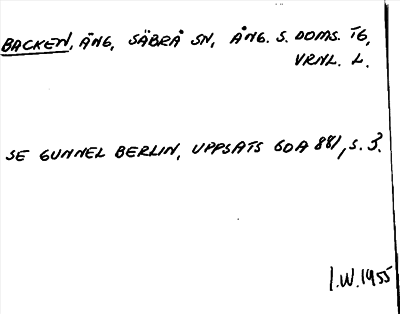 BACKEN, ÄNG, SÄBRÅ SN, ÅNG. S. DOMS. TG,
VRNL. L.
SE GUNNEL BERLIN, UPPSATS GDA 881, S. 3.
I.W. 1955